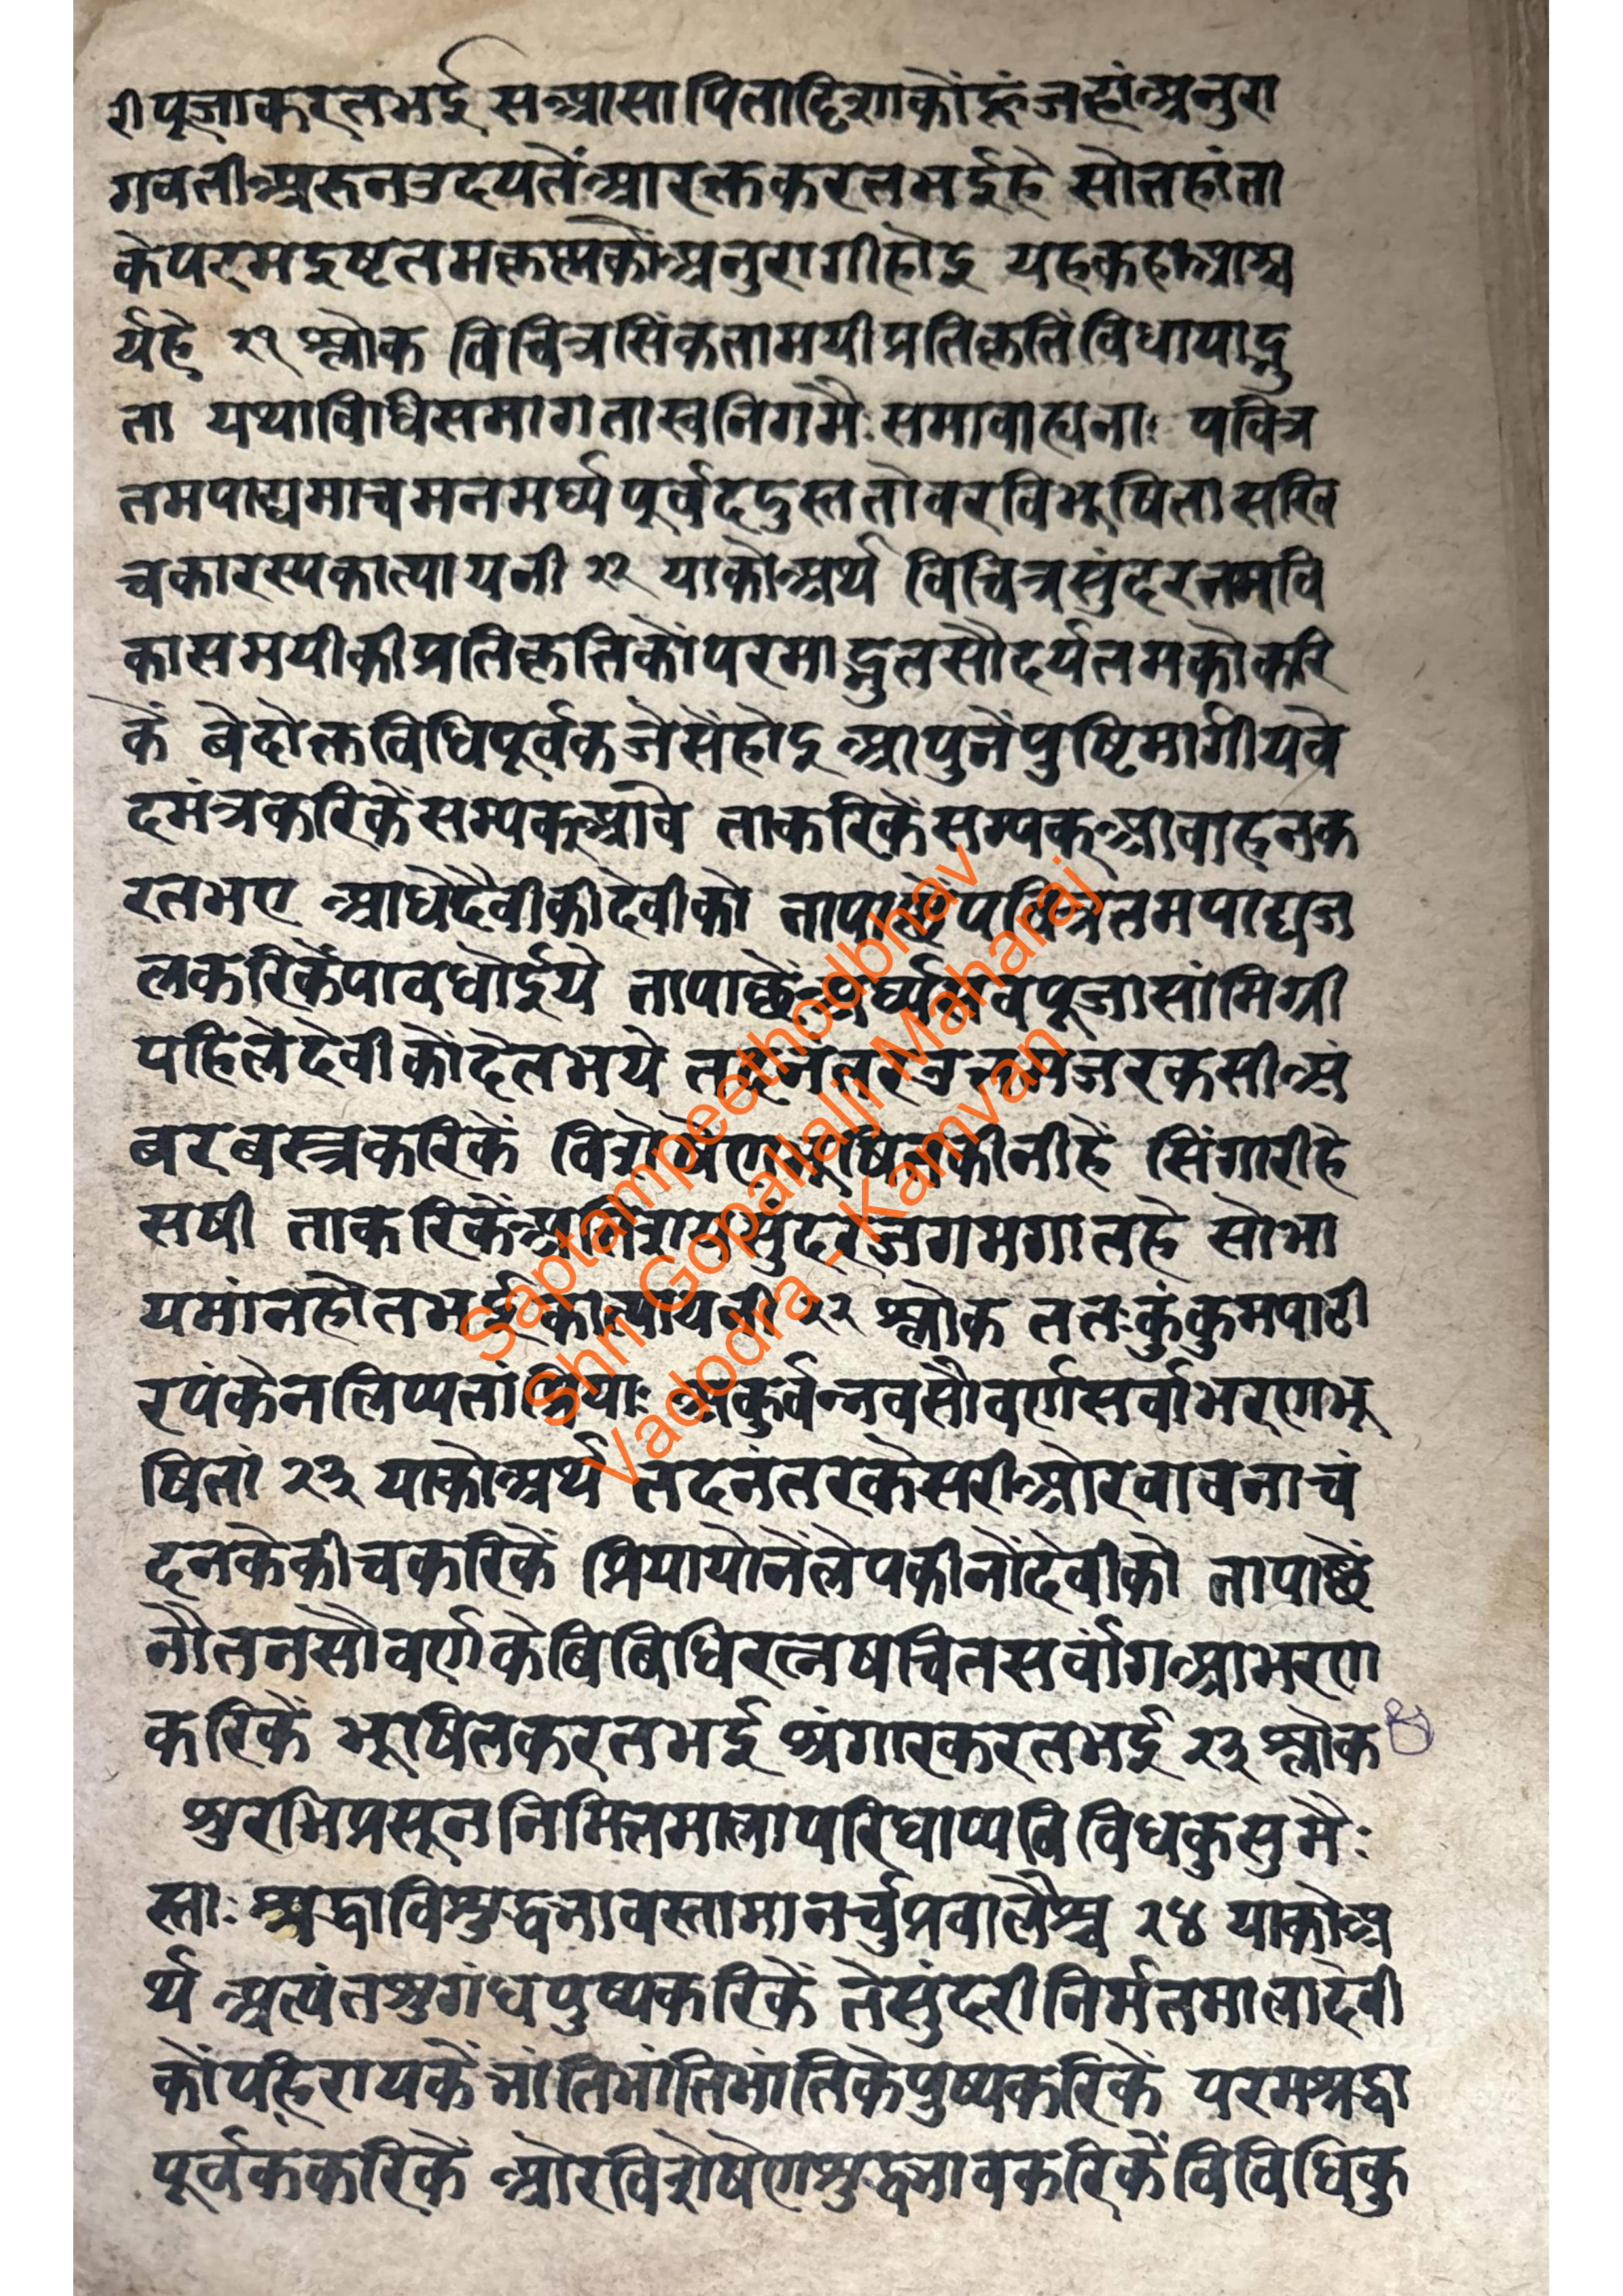 री पूजा करत भई स आसा पितादिशाकोंहूं जहां अनुरा
गवती अरुन उदयतें आरक्त करत भई हे सो तहां ता
के परम इष्टतम कृष्णको अनुरागी होइ यह कहा आश्च
र्य हे २१ श्लोक विचित्रसिकतामयी प्रतिकृतिं विधायाद्भु
ता यथाविधिसमागता स्वनिगमैः समावाह्यताः पवित्र
तमपाद्यमाचमनमर्घ्य पूर्वं ददुस्ततो वरविभूषिता सखि
चकास्त्यकात्यायनी २२ याको अर्थ विचित्र सुंदरतमवि
कासमयीकी प्रतिकृतिकों परमाद्भुत सौदर्यतमको करि
कें बेदोक्त विधिपूर्वक जेसें होइ आपुनें पुष्टिमार्गीय वे
दमंत्र करिकें सम्यक् आवे ताकरिकें सम्यक् आवाहन क
रत भए आधिदैवीकी देवीको तापाछें पवित्रतम पाद्य ज
ल करिकें पाव धोईये तापाछें अर्घ्य सब पूजा सांमिग्री
पहिले देवीकों देत भये तदनंतर उत्तम जरकसी अं
बर बस्त्र करिकें विशेषेण भूषित कीनी हें सिंगारी हे
सषी ताकरिकें अतिशय सुंदर जगमगात हे सोभा
यमांन होत भई कात्यायनी २२ श्लोक ततः कुंकुमपाटी
रपंकेन लिप्यतां प्रियाः अकुर्वन्नवसौवर्ण सर्वाभरणभू
षितां २३ याको अर्थ तदनंतर केसरी ओर वावना चं
दनके कीच करिकें प्रियायोनें लेप कीनों देवीको तापाछें
नौतन सौवर्णके बिबिधि रत्नषचित सर्वांग आभरण
करिकें भूषित करत भई श्रंगार करत भई २३ श्लोक
श्रुरभिप्रसूननिमितमाला परिधाप्य विविधकुसुमैः
स्ताः श्रद्धाविश्रुद्धभावस्तामानर्चु प्रवालैश्च २४ याको अ
र्थ अत्यंत श्रुगंध पुष्प करिकें ते सुंदरी निर्मत माला देवी
कों पहिरायकें भांति भांति भांतिके पुष्प करिकें परम श्रद्धा
पूर्वक करिकें ओर विशेषेण श्रुद्धभाव करिकें विविधि कु
Saptampeethodbhav
Shri Gopallalji Maharaj
Vadodra - Kamvan